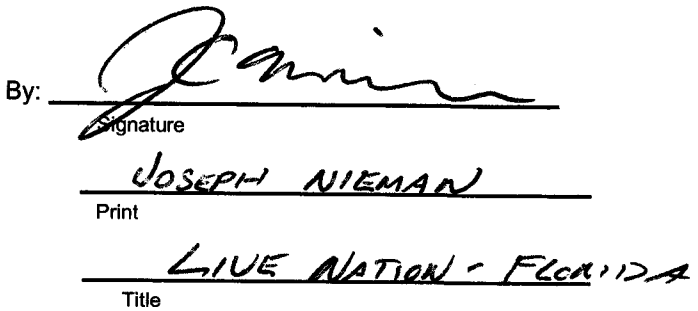 By:
Signature
JOSEPH NIEMAN
Print
LIVE NATION - FLORIDA
Title